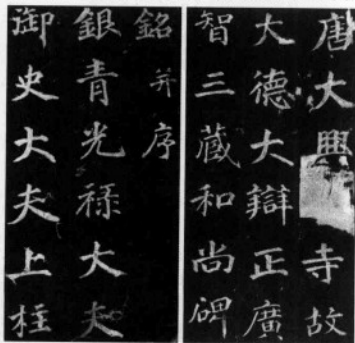 唐大興寺故
大德大辯正廣
智三藏和尚碑
銘并序
銀青光祿大夫
御史大夫上柱